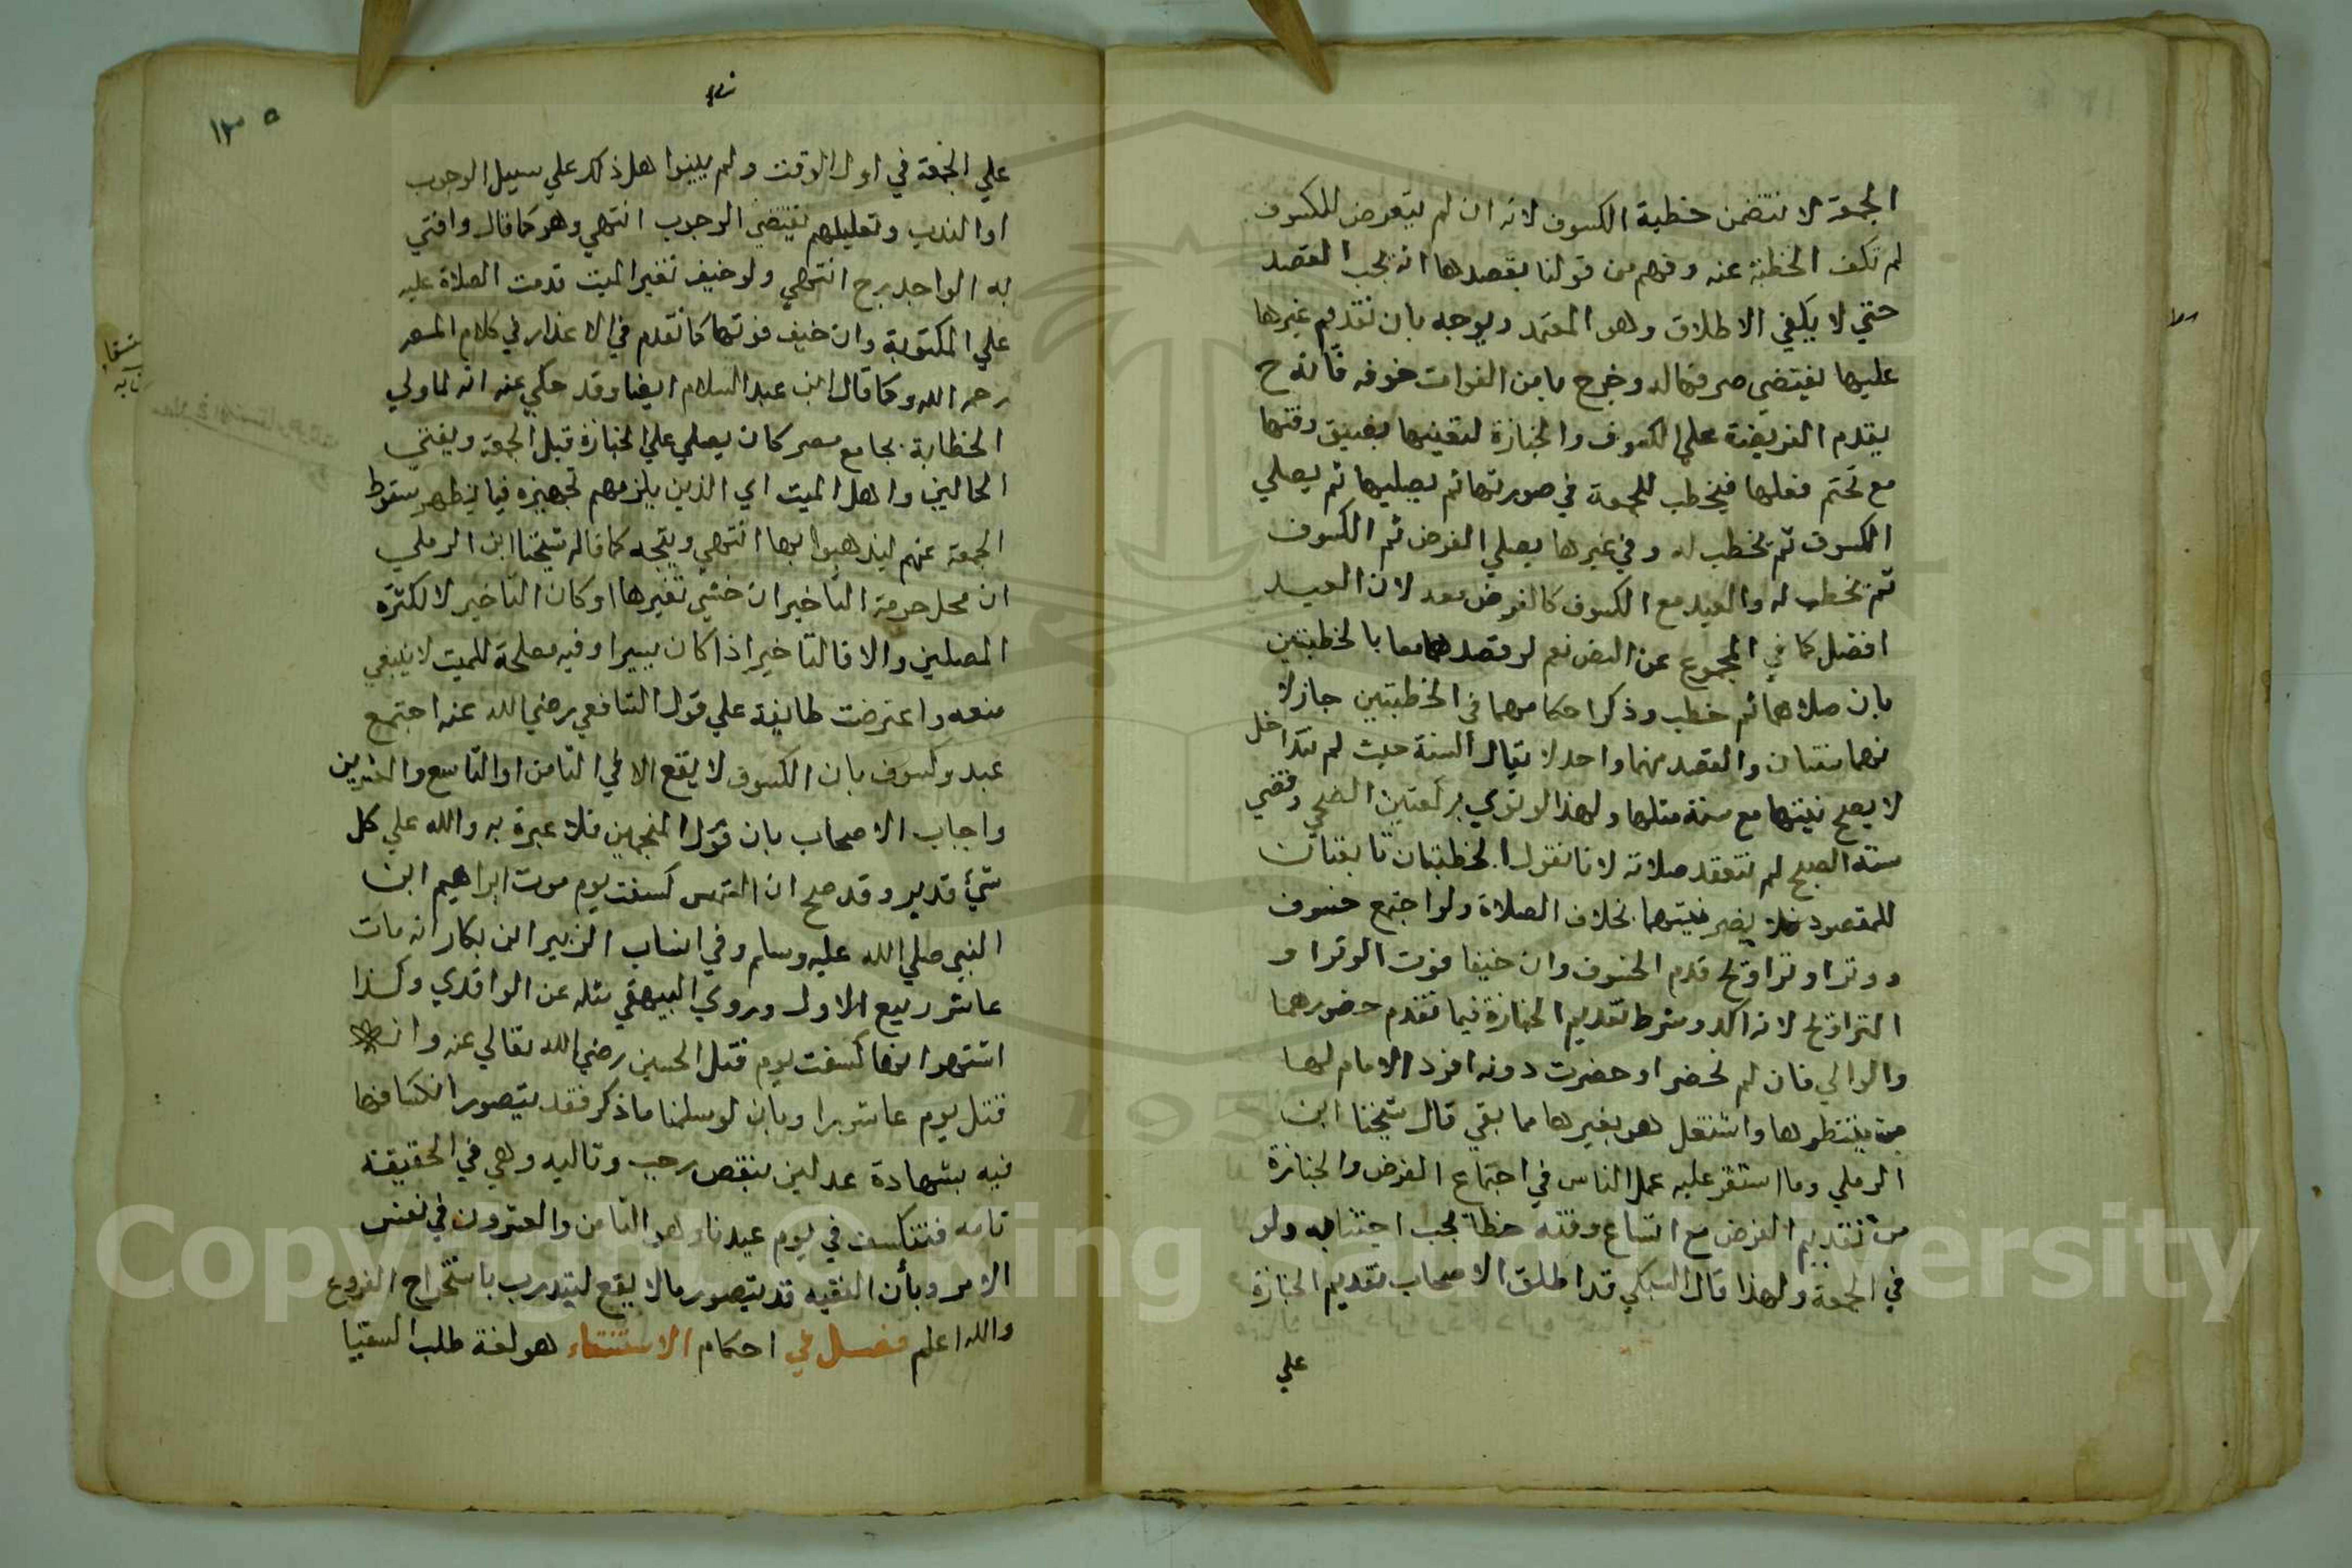 الجمعة لا تتضمن خطبة الكسوف لانه ان لم يتعرض للكسوف
لم تكف الخطبة عنه وفهم من قولنا بقصدها انه يجب القصد
حتي لا يكفي الاطلاق وهو المعتمد ويوجه بان تقديم غيرها
عليها يقتضي صرفها له وخرج بامن الفوات خوفه فانه ح
يقدم الفريضة علي الكسوف والجنازة لتعينها بضيق وقتها
مع تحتم فعلها فيخطب للجمعة في صورتها ثم يصليها ثم يصلي
الكسوف ثم يخطب له وفي غيرها يصلي الفرض ثم الكسوف
ثم يخطب له والعيد مع الكسوف كالفرض معه لان العيد
افضل كما في المجموع عن النص نعم لو قصدهما معا بالخطبتين
بان صلاهما ثم خطب وذكر احكامهما في الخطبتين جاز لا
نهما سنتان والقصد منهما واحد لا يقال السنة حيث لم تتداخل
لا يصح نيتها مع سنة مثلها ولهذا لو نوي بركعتين الضحي وقضي
سنة الصبح لم تنعقد صلاته لانا نقول الخطبتان تابعتان
للمقصود فلا يضر نيتهما بخلاف الصلاة ولو اجتمع خسوف
ووترا وتراويح قدم الخسوف وان خيفا فوت الوتر او
التراويح لانه اكد وشرط تقديم الجنازة فيما تقدم حضورهما
والوالي فان لم تحضر او حضرت دونه افرد الامام لها
من ينتظرها واشتغل هو بغيرها مما بقي قال شيخنا ابن
الرملي وما استقر عليه عمل الناس في اجتماع الفرض والجنازة
من تقديم الفرض مع اتساع وقته خطأ يجب اجتنابه ولو
في الجمعة ولهذا قال السبكي قد اطلق الاصحاب تقديم الجنازة
علي
١٣٥
علي الجمعة في اول الوقت ولم يبينوا هل ذلك علي سبيل الوجوب
او الندب وتعليلهم يقتضي الوجوب انتهي وهو كما قال وافتي
به الوالد رح انتهي ولو خيف تغير الميت قدمت الصلاة عليه
علي المكتوبة وان خيف فوتها كما تقدم في الاعذار في كلام المص
رحمه الله وكما قال ابن عبد السلام ايضا وقد حكي عنه انه لما ولي
الخطابة بجامع مصر كان يصلي علي الجنازة قبل الجمعة ويفتي
الحمالين واهل الميت اي الذين يلزمهم تجهيزه فيما يظهر سقوط
الجمعة عنهم ليذهبوا بها انتهي ويتجه كما قاله شيخنا ابن الرملي
ان محل حرمة التاخير ان خشي تغيرها او كان التاخير لا لكثرة
المصلين والا فالتاخير اذا كان يسيرا وفيه مصلحة للميت لا ينبغي
منعه واعترضت طايفة علي قول الشافعي رضي الله عنه اجتمع
عيد وكسوف بان الكسوف لا يقع الا في الثامن او التاسع والعشرين
واجاب الاصحاب بان قول المنجمين فلا عبرة به والله علي كل
شيء قدير وقد صح ان الشمس كسفت يوم موت ابراهيم ابن
النبي صلي الله عليه وسلم وفي انساب الزبير ابن بكار انه مات
عاشر ربيع الاول وروي البيهقي مثله عن الواقدي وكذا
اشتهر انها كسفت يوم قتل الحسين رضي الله تعالي عنه وانه
قتل يوم عاشورا وبان لو سلمنا ما ذكر فقد يتصور انكسافها
فيه بشهادة عدلين بنقص رجب وتاليه وهي في الحقيقة
تامه فتنكسف في يوم عيدنا وهو الثامن والعشرون في نفس
الامر وبأن الفقيه قد يتصور ما لا يقع ليتدرب باستخراج الفروع
والله اعلم فصل في احكام الاستسقاء هو لغة طلب السقيا
Copyright © King Saud University
195